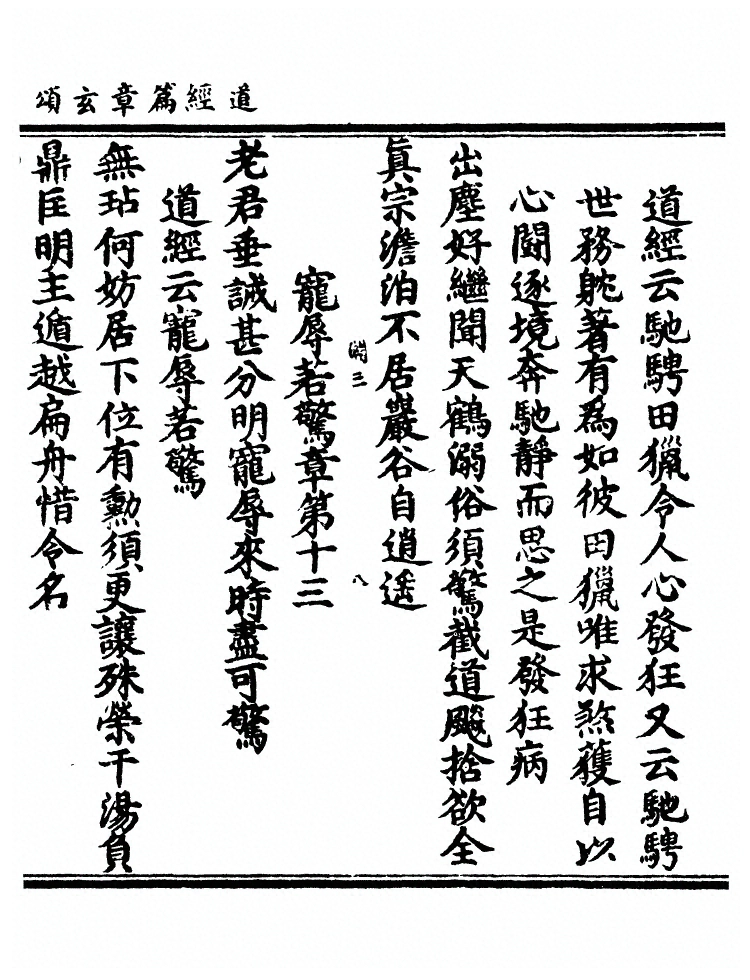 道經篇章玄頌
道經云馳騁田獵令人心發狂又云馳騁
世務躭著有為如彼田獵唯求煞獲自以
心鬪逐境奔馳靜而思之是發狂病
出塵好繼聞天鶴溺俗須驚截道飈捨欲全
真宗澹泊不居巖谷自逍遙
淵三 八
寵辱若驚章第十三
老君垂誡甚分明寵辱來時盡可驚
道經云寵辱若驚
無玷何妨居下位有勳須更讓殊榮干湯負
鼎匡明主遁越扁舟惜令名